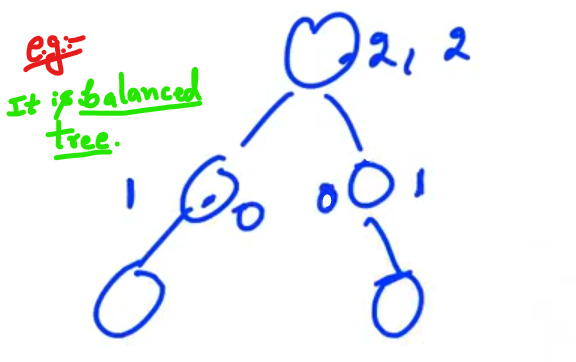 e.g:-
It is balanced
tree.
2, 2
1 0 0 1